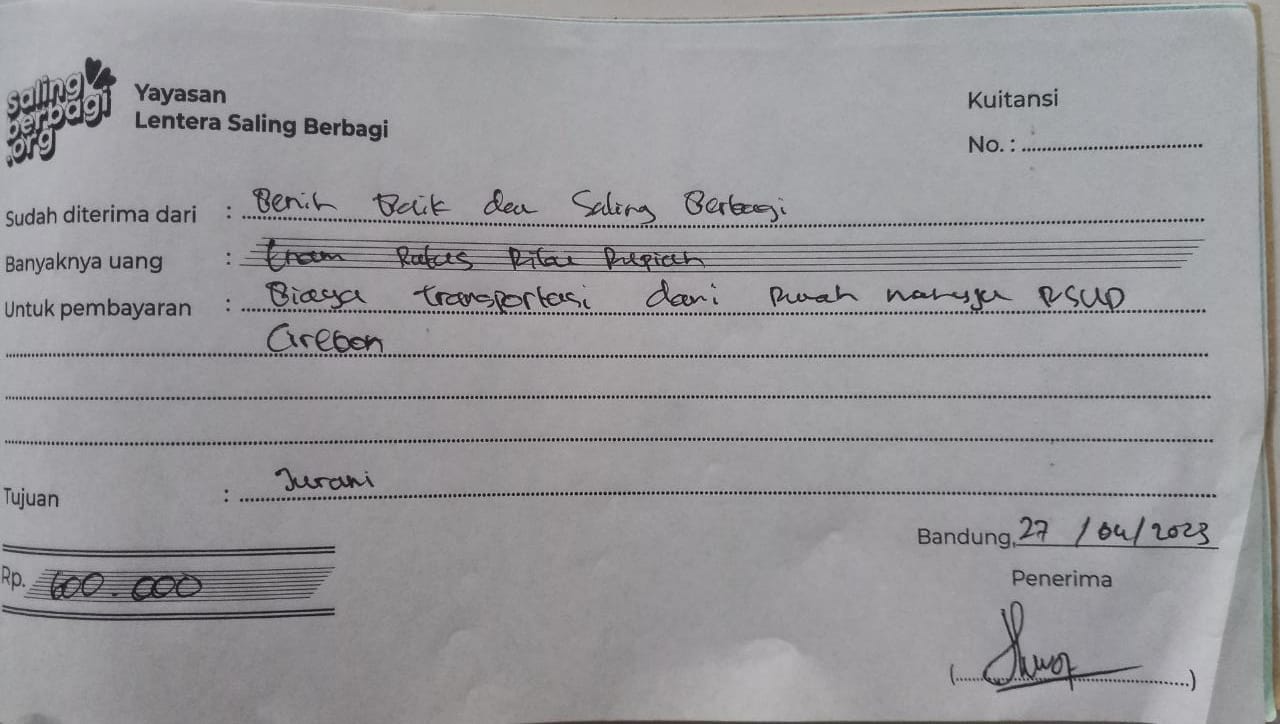 saling
berbagi
.org
Yayasan
Lentera Saling Berbagi
Kuitansi
No. :
Sudah diterima dari : Benih Baik dan Saling Berbagi
Banyaknya uang : Enam Ratus Ribu Rupiah
Untuk pembayaran : Biaya transportasi dari RSUD
Cirebon
Tujuan : Jurani
Bandung, 27 / 04 / 2023
Rp. 600.000
Penerima
(..........)